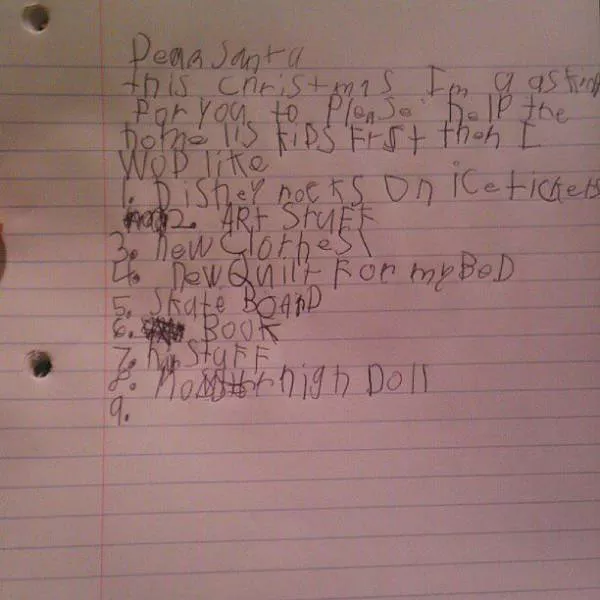 Dear Santa
this christmas Im a asking
For you to Please help the
homelis kids First then I
WoD like
1. Disney rocks on ice tickets
2. ARt StuFF
3. new Clothes
4. new Quilt For my BeD
5. Skate BOARD
6. BOOK
7. StuFF
8. high Doll
9.